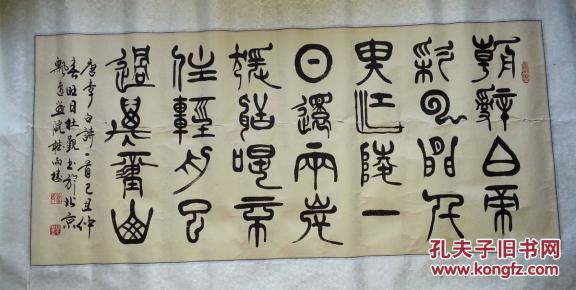 朝辭白帝
彩雲間千
里江陵一
日還兩岸
猿聲啼不
住輕舟已
過萬重山
唐李白詩一首己丑仲
春日杜书於北京
孔夫子旧书网
www.kongfz.com